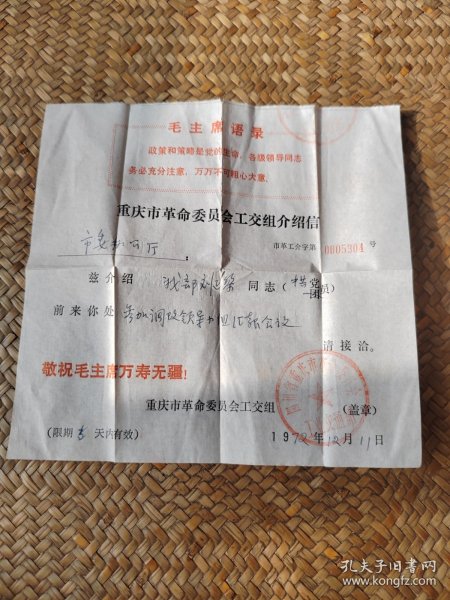 毛主席语录
政策和策略是党的生命，各级领导同志
务必充分注意，万万不可粗心大意。
重庆市革命委员会工交组介绍信
市革工介字第0005304号
市委办公厅：
兹介绍 我部 同志（党团员）
前来你处参加调改领导小组汇报会议
请接洽。
敬祝毛主席万寿无疆！
重庆市革命委员会工交组（盖章）
（限期 天内有效）
1972年12月11日
孔夫子旧书网
www.kongfz.com